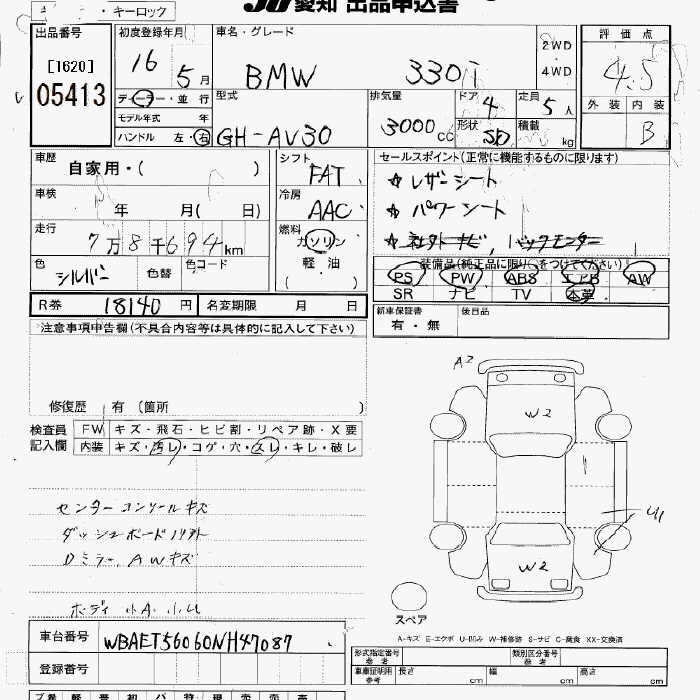 ・キーロック
JU愛知 出品申込書
出品番号
[1620]
05413
初度登録年月
16 5月
ディーラー・並行
モデル年式 年
ハンドル 左・右
車名・グレード
BMW 330i
2WD
4WD
型式
GH-AV30
排気量
3000cc
ドア
4
形状
SD
定員
5人
積載
kg
評価点
4.5
外装 内装
B
車歴
自家用・( )
車検
年 月( 日)
走行
7万8千694km
色
シルバー
色替
色コード
シフト
FAT
冷房
AAC
燃料
ガソリン
軽・油
( )
セールスポイント(正常に機能するものに限ります)
☆ レザーシート
☆ パワーシート
装備品(純正品に限り○をつけてください)
PS PW ABS エアB AW
SR ナビ TV 本革
R券 18140円 名変期限 月 日
新車保証書
有・無
後日品
注意事項申告欄(不具合内容等は具体的に記入して下さい)
修復歴 有 (箇所 )
検査員
記入欄
FW キズ・飛石・ヒビ割・リペア跡・X要
内装 キズ・汚レ・コゲ・穴・スレ・キレ・破レ
センターコンソールキズ
Dミラー、AWキズ
ボディ 小A. 小U
A2
W2
U1
W2
スペア
A-キズ E-エクボ U-凹み W-補修跡 S-サビ C-腐食 XX-交換済
車台番号 WBAET56060NH47087
登録番号
形式指定番号
参考
類別区分番号
参考
車庫証明用
参考
長さ cm 幅 cm 高さ cm